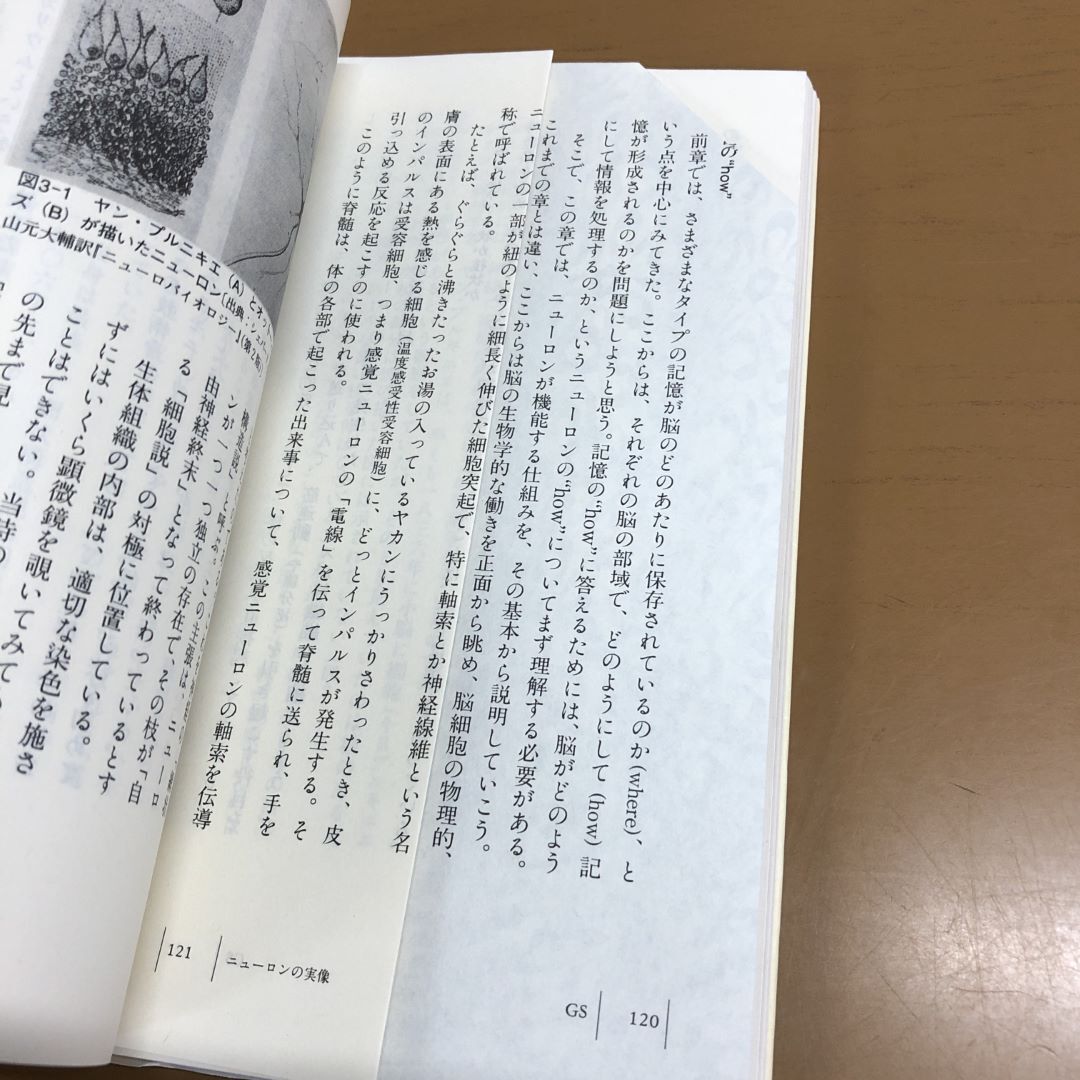 の“how”
前章では、さまざまなタイプの記憶が脳のどのあたりに保存されているのか(where)、と
いう点を中心にみてきた。ここからは、それぞれの脳の部域で、どのようにして(how)記
憶が形成されるのかを問題にしようと思う。記憶の“how”に答えるためには、脳がどのよう
にして情報を処理するのか、というニューロンの“how”についてまず理解する必要がある。
そこで、この章では、ニューロンが機能する仕組みを、その基本から説明していこう。
これまでの章とは違い、ここからは脳の生物学的な働きを正面から眺め、脳細胞の物理的、
ニューロンの一部が紐のように細長く伸びた細胞突起で、特に軸索とか神経線維という名
称で呼ばれている。
たとえば、ぐらぐらと沸きたったお湯の入っているヤカンにうっかりさわったとき、皮
膚の表面にある熱を感じる細胞(温度感受性受容細胞)に、どっとインパルスが発生する。そ
のインパルスは受容細胞、つまり感覚ニューロンの「電線」を伝って脊髄に送られ、手を
引っ込める反応を起こすのに使われる。
このように脊髄は、体の各部で起こった出来事について、感覚ニューロンの軸索を伝導
GS
120
121
ニューロンの実像
図3-1 ヤン・プルニキエ(A)とオットー
ズ(B)が描いたニューロン(出典・シェパ
山元大輔訳『ニューロバイオロジー』(第2版))
ンが一つ一つ独立の存在で、ニューロ
由神経終末」となって終わっているとす
る「細胞説」の対極に位置している。
生体組織の内部は、適切な染色を施さ
ずにはいくら顕微鏡を覗いてみても
ことはできない。当時の
の先まで見